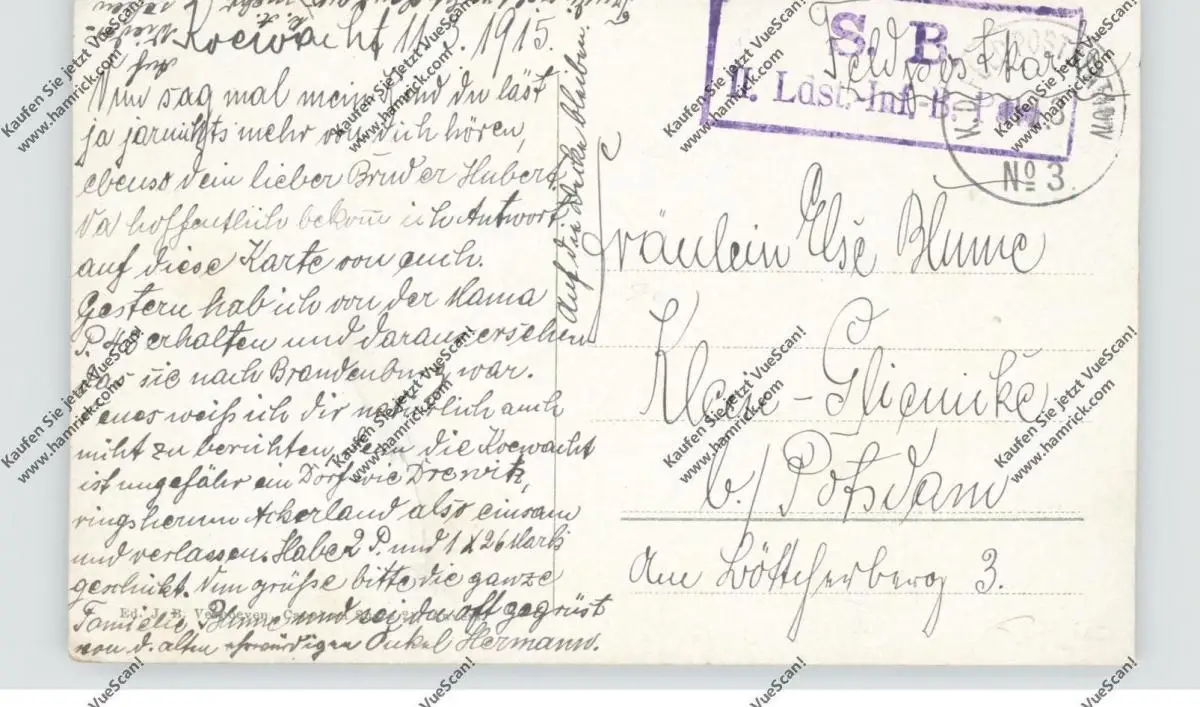 Koewacht 11.3.1915.
Nun sag mal mein Kind du läst
ja jarnichts mehr von dich hören,
ebenso dein lieber Bruder Hubert.
Na hoffentlich bekom̄ ich Antwort
auf diese Karte von euch.
Gestern hab ich von der Mama
P. 40 erhalten und daraus ersehen
das sie nach Brandenburg war.
Neues weiß ich dir natürlich auch
nicht zu berichten, denn die Koewacht
ist ungefähr ein Dorf wie Drewitz,
ringsherum Ackerland also einsam
und verlassen. Habe 2 P. und 1 X 26 Mark
geschickt. Nun grüße bitte die ganze
Familie Blume und sei du oft gegrüst
von d. alten ehrwürdigen Onkel Hermann.
auf die Karte bleiben
Ed. J. B.
S. B.
II. Ldst.-Inf.-B.
Feldpostkarte
K.D.
No 3
Fräulein Else Blume
Klein-Glienicke
b/ Potsdam
Am Böttcherberg 3.
Kaufen Sie jetzt VueScan!
www.hamrick.com